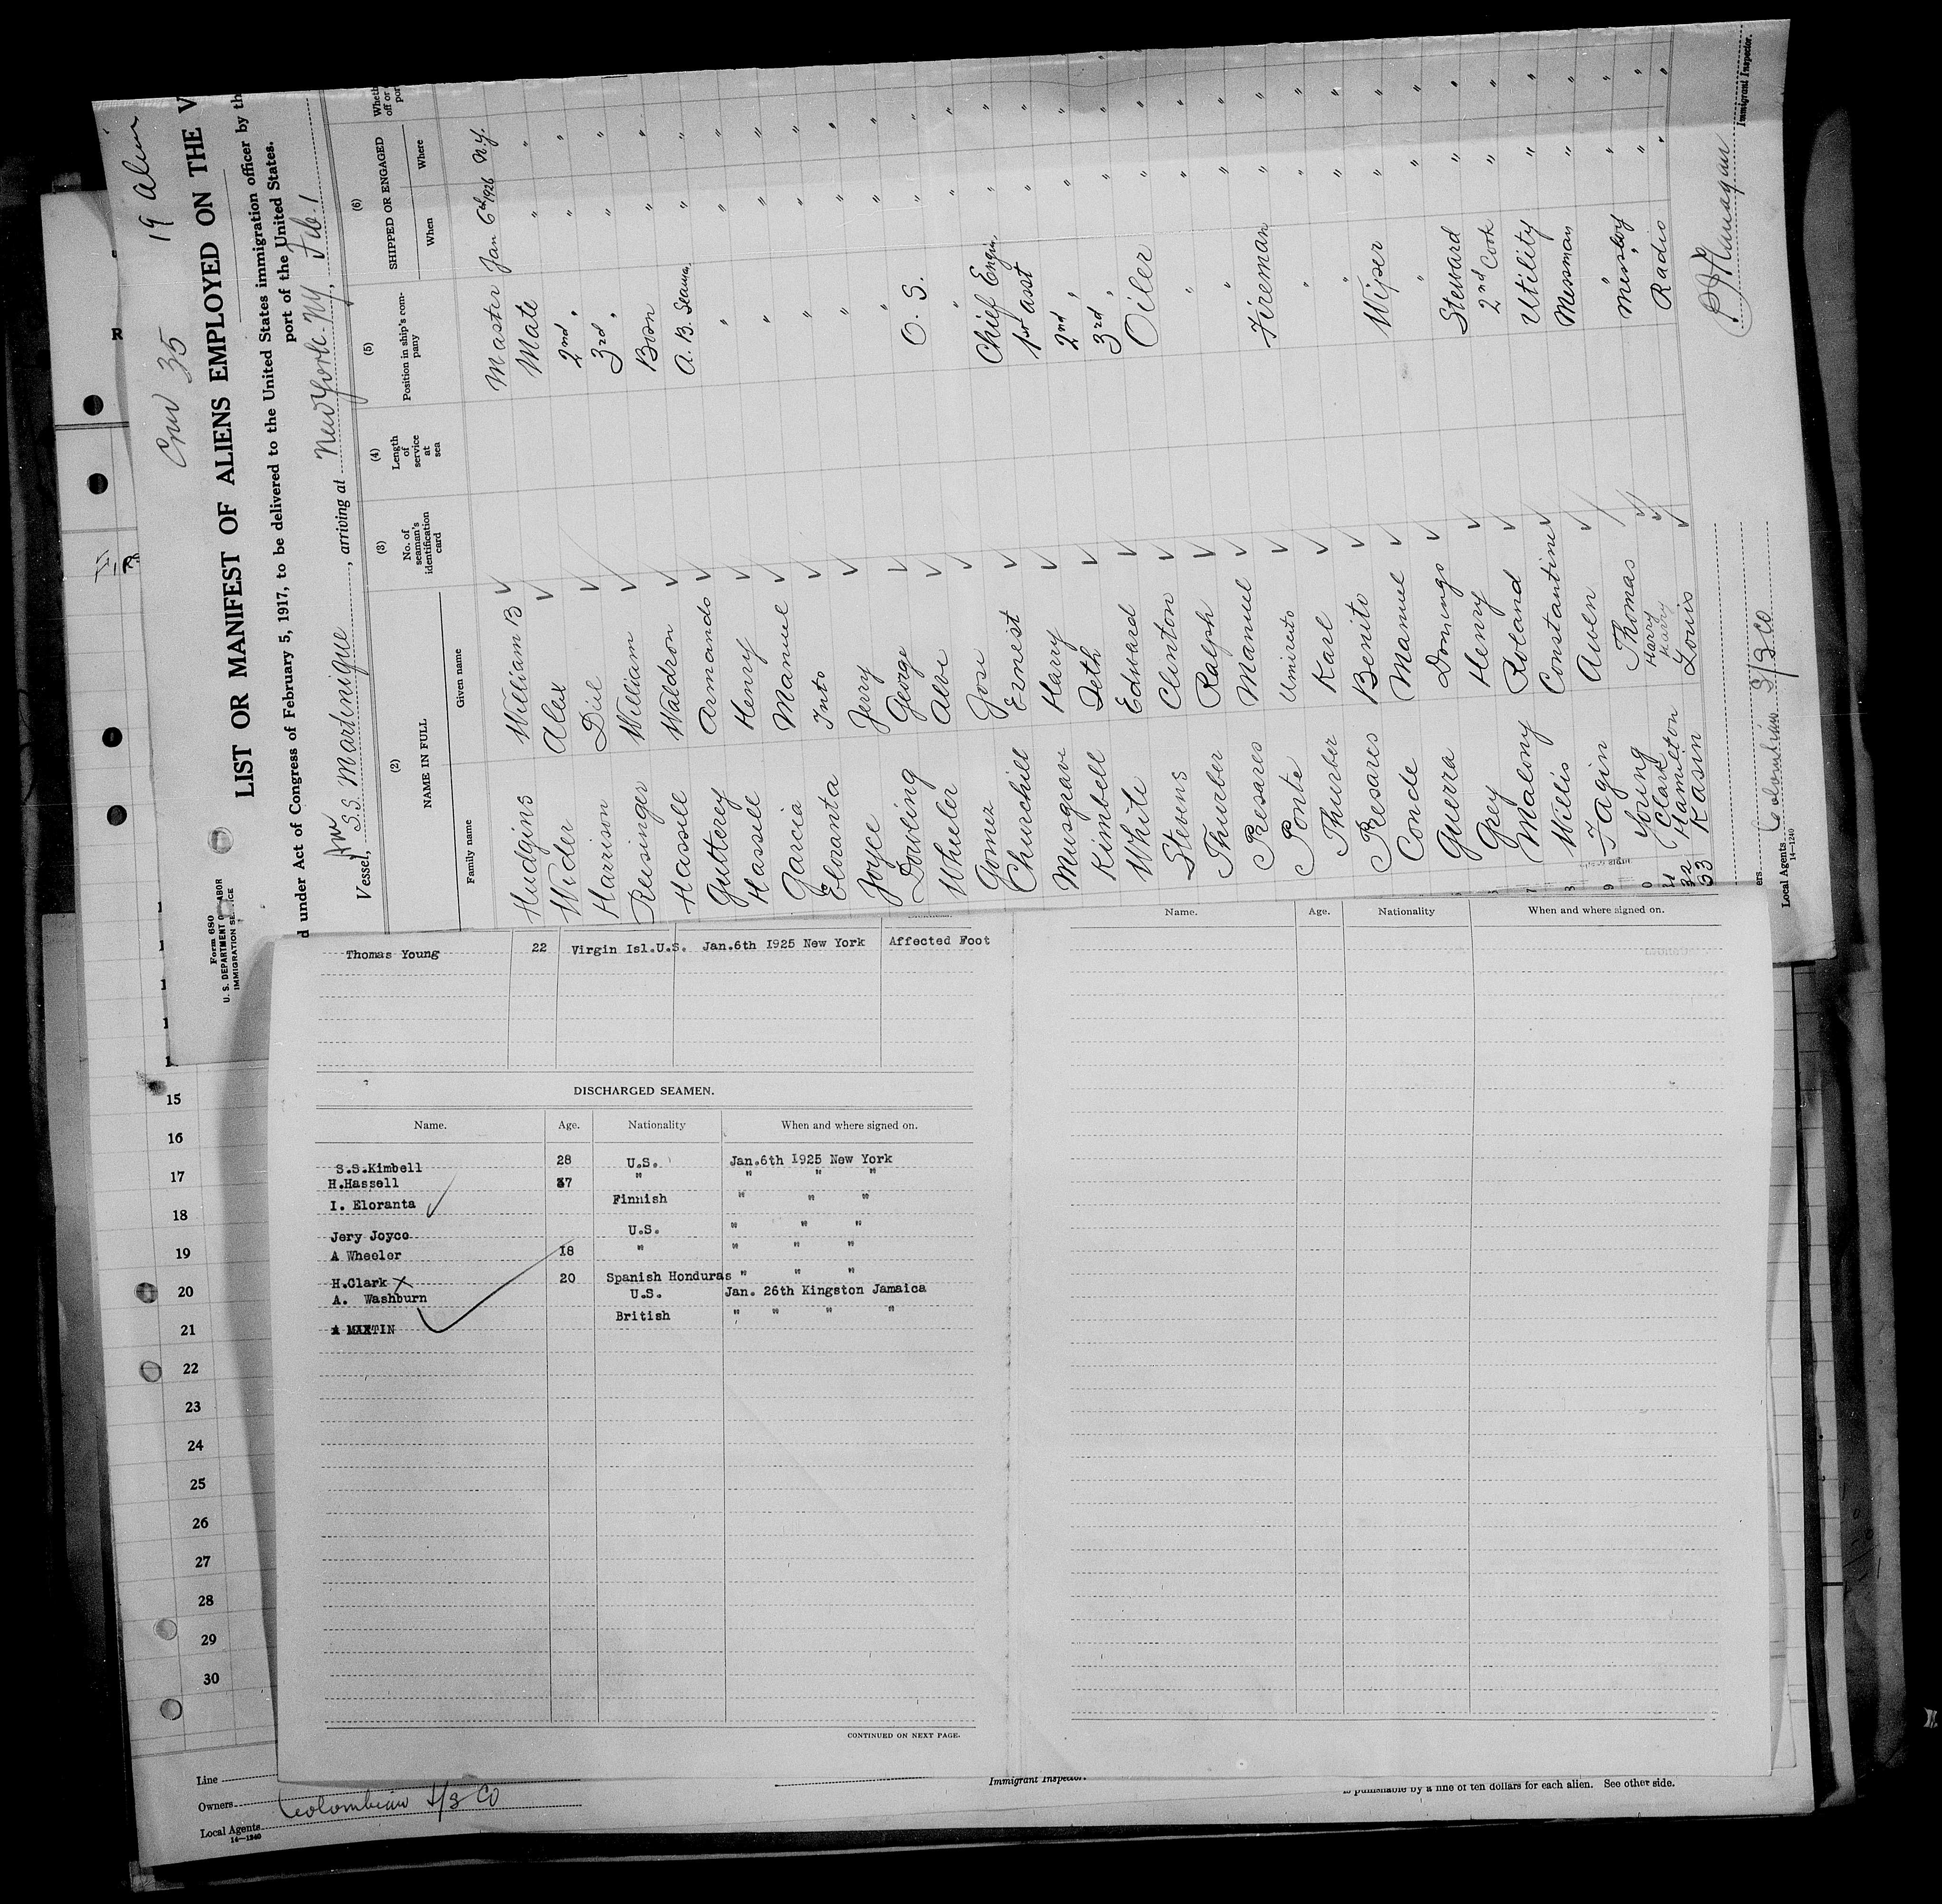 Crew 35
19 Alien
Form 680
U. S. DEPARTMENT OF LABOR
IMMIGRATION SERVICE
LIST OR MANIFEST OF ALIENS EMPLOYED ON THE V
d under Act of Congress of February 5, 1917, to be delivered to the United States immigration officer by th
port of the United States.
Vessel, Am S.S. Martinique, arriving at New York NY, Feb. 1
(2) (3) (4) (5) (6)
NAME IN FULL No. of seaman's identification card Length of service at sea Position in ship's company SHIPPED OR ENGAGED
Family name Given name When Where
Hudgins William B Master Jan 6th 1926 N.Y.
Wider Alex Mate " "
Harrison 2nd " " "
Reisinger William 3rd " " "
Hassell Waldron Bosn " "
Gutterey Armando A. B. Seaman " "
Hassell Henry " " "
Garcia Manuel " " "
Eloranta " " "
Joyce Jerry " " "
Dowling George " " "
Wheeler O. S. " "
Gomez Jose " " "
Churchill Ernest Chief Engin. " "
Musgrave Harry 1st asst " "
Kimbell Seth 2nd " " "
White Edward 3rd " " "
Stevens Clinton Oiler " "
Thurber Ralph " " "
Presares Manuel " " "
Ponte Fireman " "
Thurber Karl " " "
Presares Benito " " "
Conde Manuel Wiper " "
Guerra Domingo " " "
Grey Henry Steward " "
Malony Roland 2nd Cook " "
Willis Constantine Utility " "
Fagin Messman " "
Young Thomas " " "
Clark Harry Messboy " "
32 Hamilton Harry
33 Kasin Louis Radio " "
Immigrant Inspector.
ers. Colombian S/S Co
Local Agents
14—1240
Thomas Young 22 Virgin Isl.U.S. Jan.6th 1925 New York Affected Foot
DISCHARGED SEAMEN.
Name. Age. Nationality When and where signed on.
S.S.Kimbell 28 U.S. Jan.6th 1925 New York
H.Hassell 37 " " " "
I. Eloranta Finnish " " "
Jery Joyce U.S. " " "
A Wheeler 18 " " " "
H.Clark X 20 Spanish Honduras " " "
A. Washburn U.S. Jan. 26th Kingston Jamaica
A MARTIN British " " " "
CONTINUED ON NEXT PAGE.
Name. Age. Nationality When and where signed on.
15
16
17
18
19
20
21
22
23
24
25
26
27
28
29
30
Line
Owners Colombian S/S Co
Local Agents
14—1240
Immigrant Inspector.
is punishable by a fine of ten dollars for each alien. See other side.